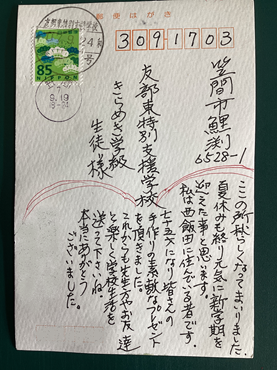 郵便はがき
309-1703
笠間市鯉渕
6528-1
友部東特別支援学校
きらめき学級
生徒様
85
NIPPON
9.19
この所秋らしくなってまいりました。
夏休みも終り元気に新学期を
迎えた事と思います。
私は西飯田に住んでいる者です。
七十五才になり皆さんの
手作りの素敵なプレゼント
を頂きました。
これからも先生方やお友達
と楽しく学校生活を
送って下さいね。
本当にありがとう
ございました。